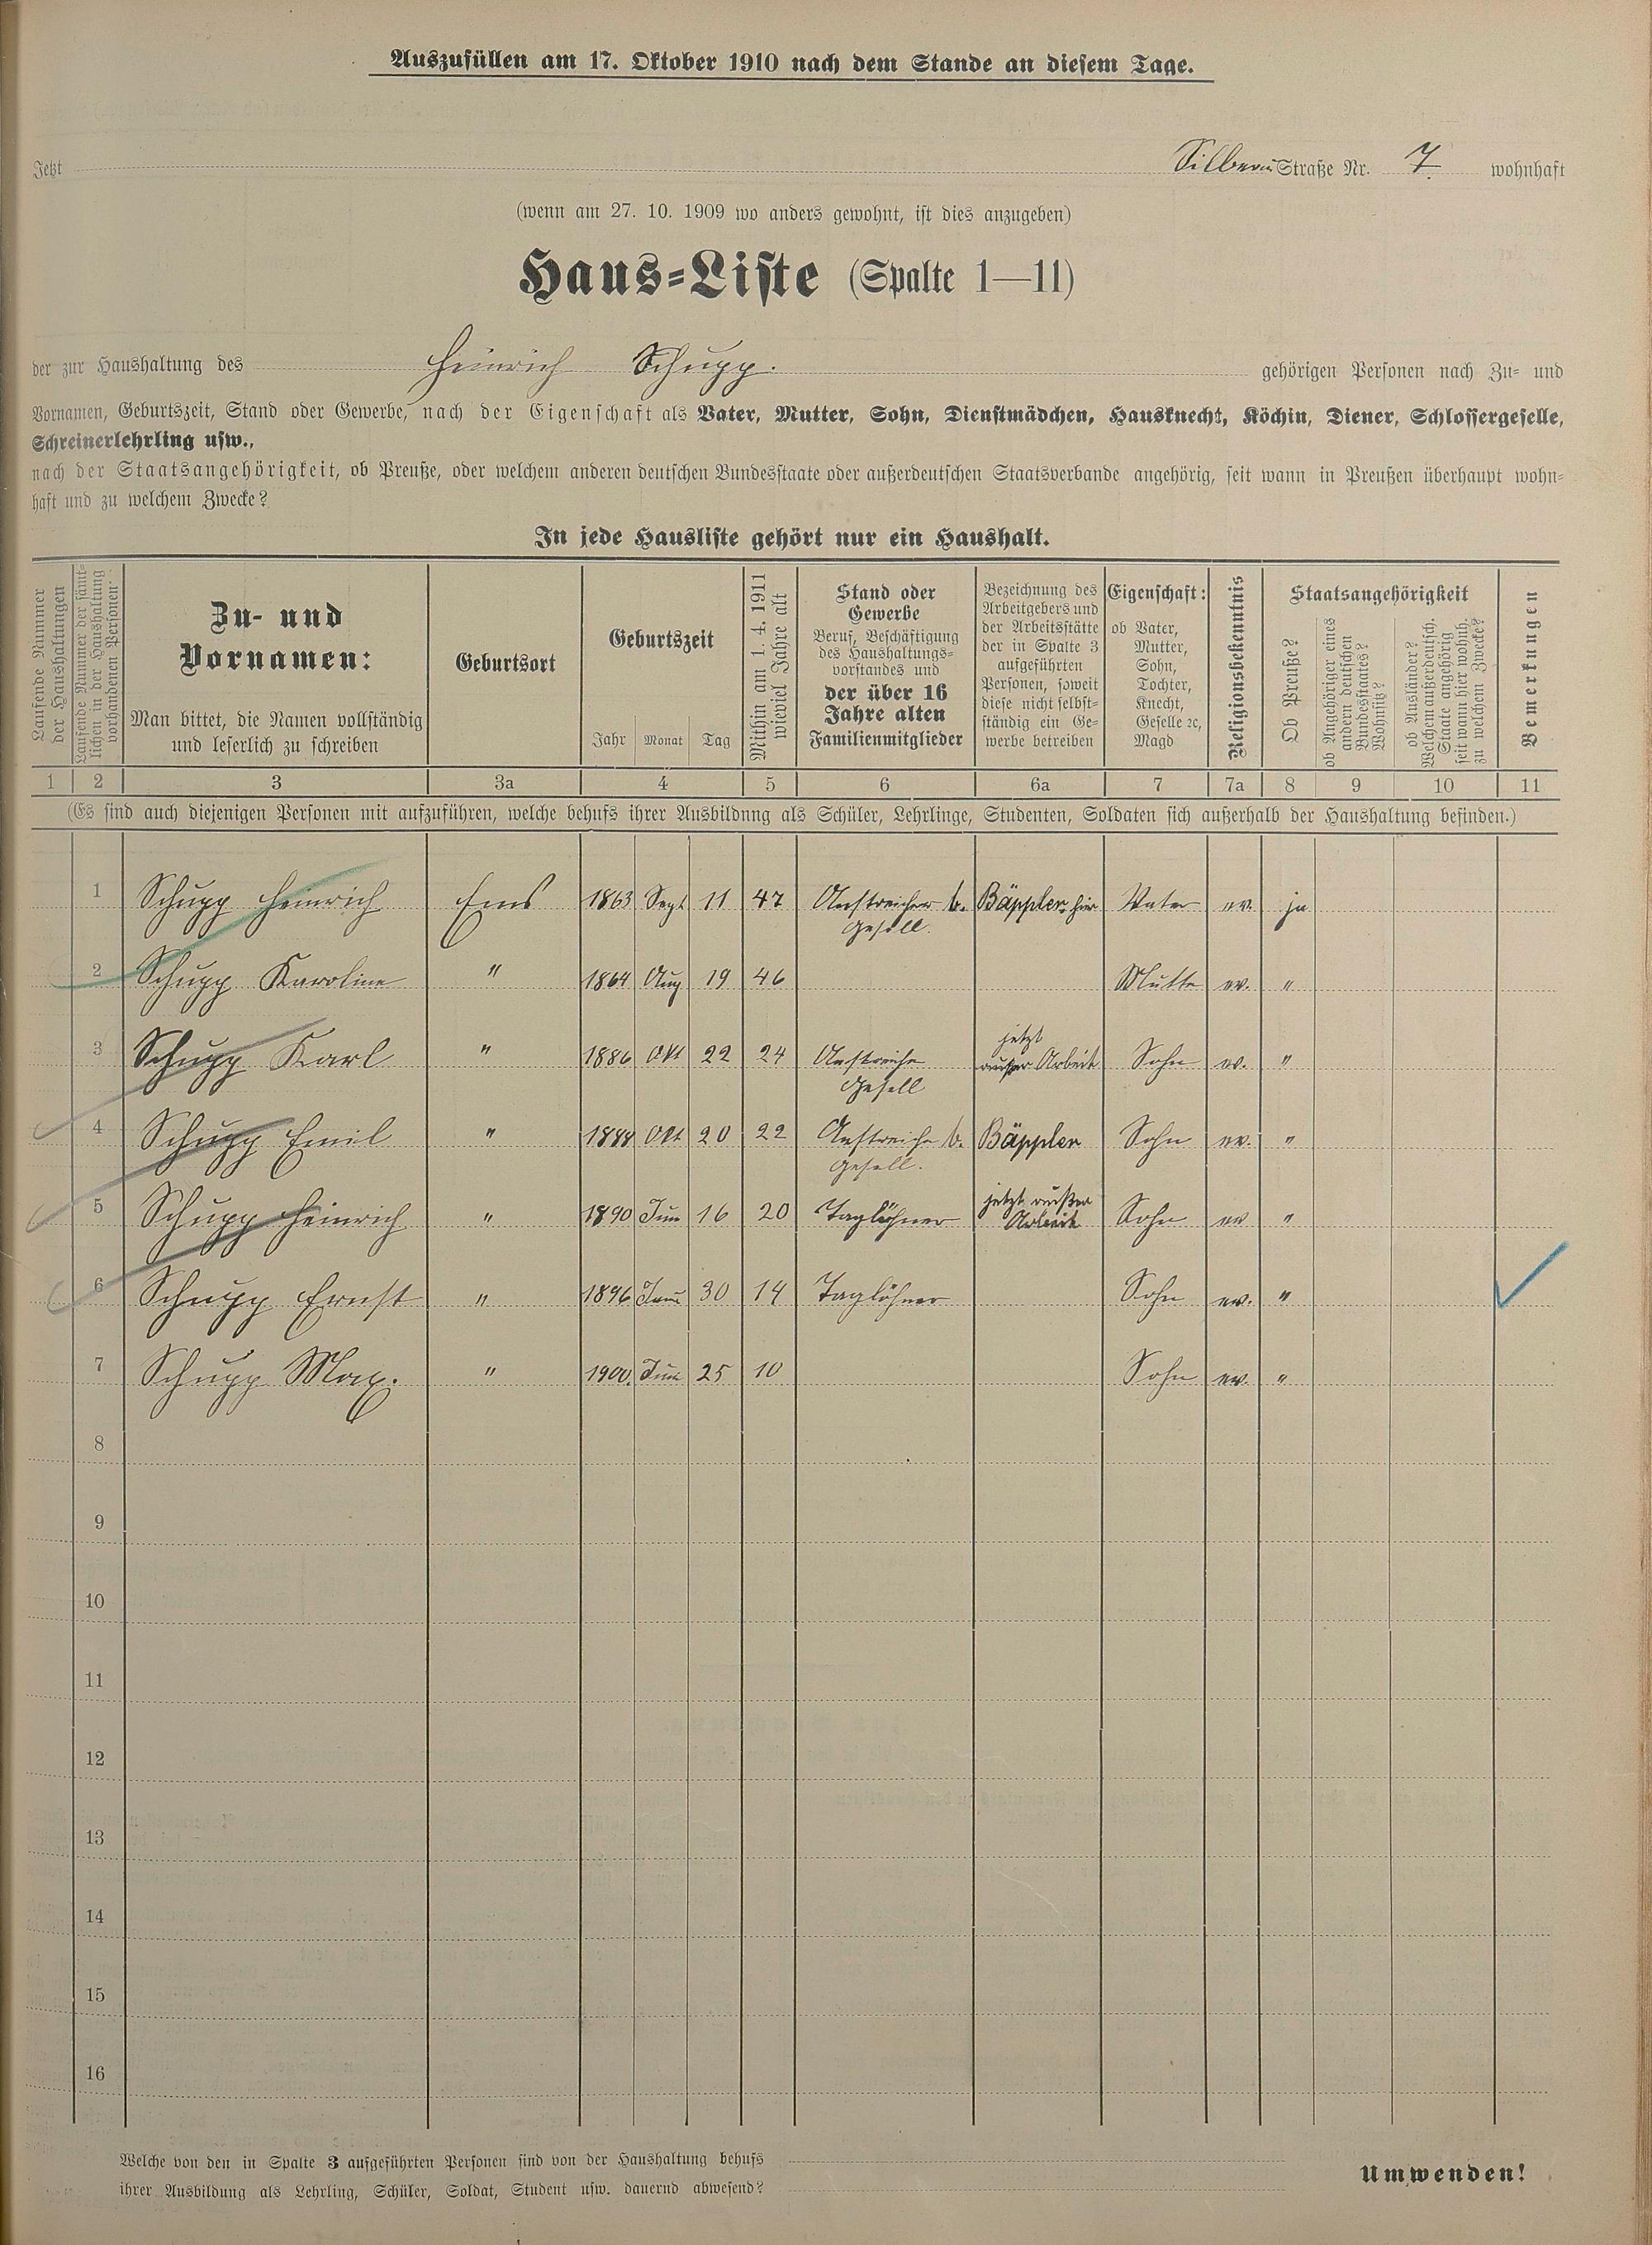 Auszufüllen am 17. Oktober 1910 nach dem Stande an diesem Tage.
Jetzt Silberau Straße Nr. 7. wohnhaft
(wenn am 27. 10. 1909 wo anders gewohnt, ist dies anzugeben)
Haus-Liste (Spalte 1—11)
der zur Haushaltung des Heinrich Schupp. gehörigen Personen nach Zu- und
Vornamen, Geburtszeit, Stand oder Gewerbe, nach der Eigenschaft als Vater, Mutter, Sohn, Dienstmädchen, Hausknecht, Köchin, Diener, Schlossergeselle,
Schreinerlehrling usw.,
nach der Staatsangehörigkeit, ob Preuße, oder welchem anderen deutschen Bundesstaate oder außerdeutschen Staatsverbande angehörig, seit wann in Preußen überhaupt wohn-
haft und zu welchem Zwecke?
In jede Hausliste gehört nur ein Haushalt.
Laufende Nummer
der Haushaltungen
Laufende Nummer der sämt-
lichen in der Haushaltung
vorhandenen Personen
Zu- und
Vornamen:
Man bittet, die Namen vollständig
und leserlich zu schreiben
Geburtsort
Geburtszeit
Jahr Monat Tag
Mithin am 1. 4. 1911
wieviel Jahre alt
Stand oder
Gewerbe
Beruf, Beschäftigung
des Haushaltungs-
vorstandes und
der über 16
Jahre alten
Familienmitglieder
Bezeichnung des
Arbeitgebers und
der Arbeitsstätte
der in Spalte 3
aufgeführten
Personen, soweit
diese nicht selbst-
ständig ein Ge-
werbe betreiben
Eigenschaft:
ob Vater,
Mutter,
Sohn,
Tochter,
Knecht,
Geselle ꝛc,
Magd
Religionsbekenntnis
Staatsangehörigkeit
Ob Preuße?
ob Angehöriger eines
andern deutschen
Bundesstaates?
Wohnsitz?
ob Ausländer?
Welchem außerdeutsch.
Staate angehörig
seit wann hier wohnh.
zu welchem Zwecke?
Bemerkungen
1 2 3 3a 4 5 6 6a 7 7a 8 9 10 11
(Es sind auch diejenigen Personen mit aufzuführen, welche behufs ihrer Ausbildnng als Schüler, Lehrlinge, Studenten, Soldaten sich außerhalb der Haushaltung befinden.)
1 Schupp Heinrich Ems 1863 Sept 11 47 Anstreicher b. Bäppler, hier Vater ev. ja
Gesell.
2 Schupp Karoline " 1864 Aug 19 46 Mutte ev. "
jetzt
3 Schupp Karl " 1886 Okt 22 24 Anstreiche außer Arbeit Sohn ev. "
Gesell
4 Schupp Emil " 1888 Okt 20 22 Anstreiche b. Bäppler Sohn ev. "
Gesell.
jetzt außer
5 Schupp Heinrich " 1890 Jun 16 20 Taglöhner Arbeit Sohn ev "
6 Schupp Ernst " 1896 30 14 Taglöhner Sohn ev. "
7 Schupp Max. " 1900. Jun 25 10 Sohn ev. "
8
9
10
11
12
13
14
15
16
Welche von den in Spalte 3 aufgeführten Personen sind von der Haushaltung behufs
ihrer Ausbildung als Lehrling, Schüler, Soldat, Student usw. dauernd abwesend?
Umwenden!